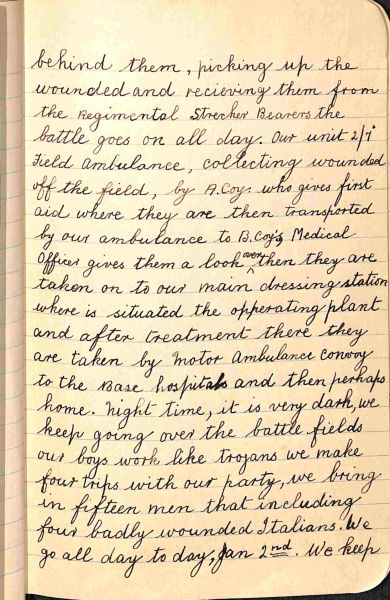 behind them, picking up the
wounded and recieving them from
the Regimental Strecher Bearers the
battle goes on all day. Our unit 2/7th
Field Ambulance, collecting wounded
off the field, by A.Coy. who gives first
aid where they are then transported
by our ambulance to B.Coy's Medical
Officer gives them a look over then they are
taken on to our main dressing station
where is situated the opperating plant
and after treatment there they
are taken by Motor Ambulance convoy
to the Base hospitals and then perhaps
home. Night time, it is very dark, we
keep going over the battle fields
our boys work like trojans we make
four trips with our party, we bring
in fifteen men that including
four badly wounded Italians. We
go all day to day, Jan 2nd. We keep